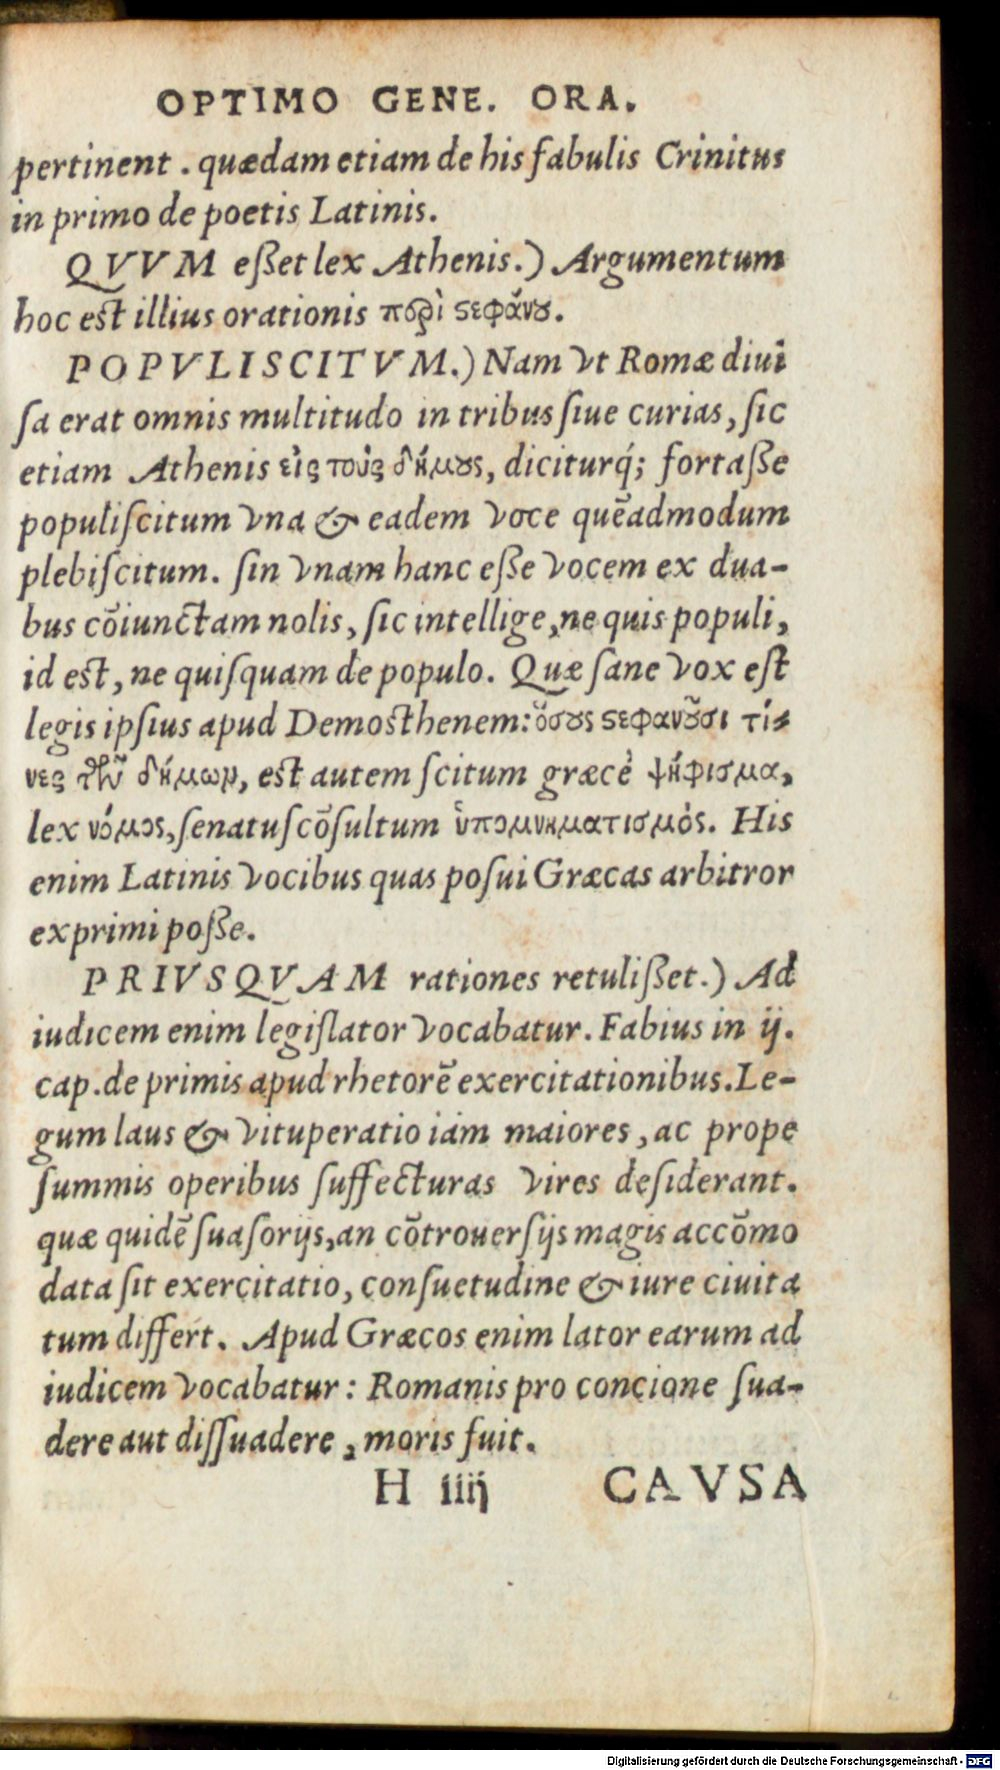 OPTIMO GENE. ORA.
pertinent . quædam etiam de his fabulis Crinitus
in primo de poetis Latinis.
QVVM eßet lex Athenis.) Argumentum
hoc est illius orationis πϵρὶ ϛεφάνȣ.
POPVLISCITVM.) Nam vt Romæ diui
ſa erat omnis multitudo in tribus ſiue curias, ſic
etiam Athenis εἰς τοὺς δήμȣς, diciturq́; fortaße
populiſcitum vna & eadem voce quẽadmodum
plebiſcitum. ſin vnam hanc eße vocem ex dua-
bus cõiunctam nolis, ſic intellige, ne quis populi,
id est, ne quiſquam de populo. Quæ ſane vox eſt
legis ipſius apud Demosthenem: ὅσȣς ϛεφανȣ͂σι τί-
νες τῶν δήμων, est autem ſcitum græcè ψήφισμα,
lex νόμος, ſenatuſcõſultum ὑπομνηματισμός. His
enim Latinis vocibus quas poſui Græcas arbitror
exprimi poße.
PRIVSQVAM rationes retulißet.) Ad
iudicem enim legiſlator vocabatur. Fabius in ij.
cap. de primis apud rhetorẽ exercitationibus. Le-
gum laus & vituperatio iàm maiores, ac prope
ſummis operibus ſuffecturas vires deſiderant.
quæ quidẽ ſuaſorijs, an cõtrouerſijs magis accõmo
data ſit exercitatio, conſuetudine & iure ciuita
tum differt. Apud Græcos enim lator earum ad
iudicem vocabatur: Romanis pro concione ſua-
dere aut diſſuadere, moris fuit.
H iiij CAVSA
Digitalisierung gefördert durch die Deutsche Forschungsgemeinschaft - DFG